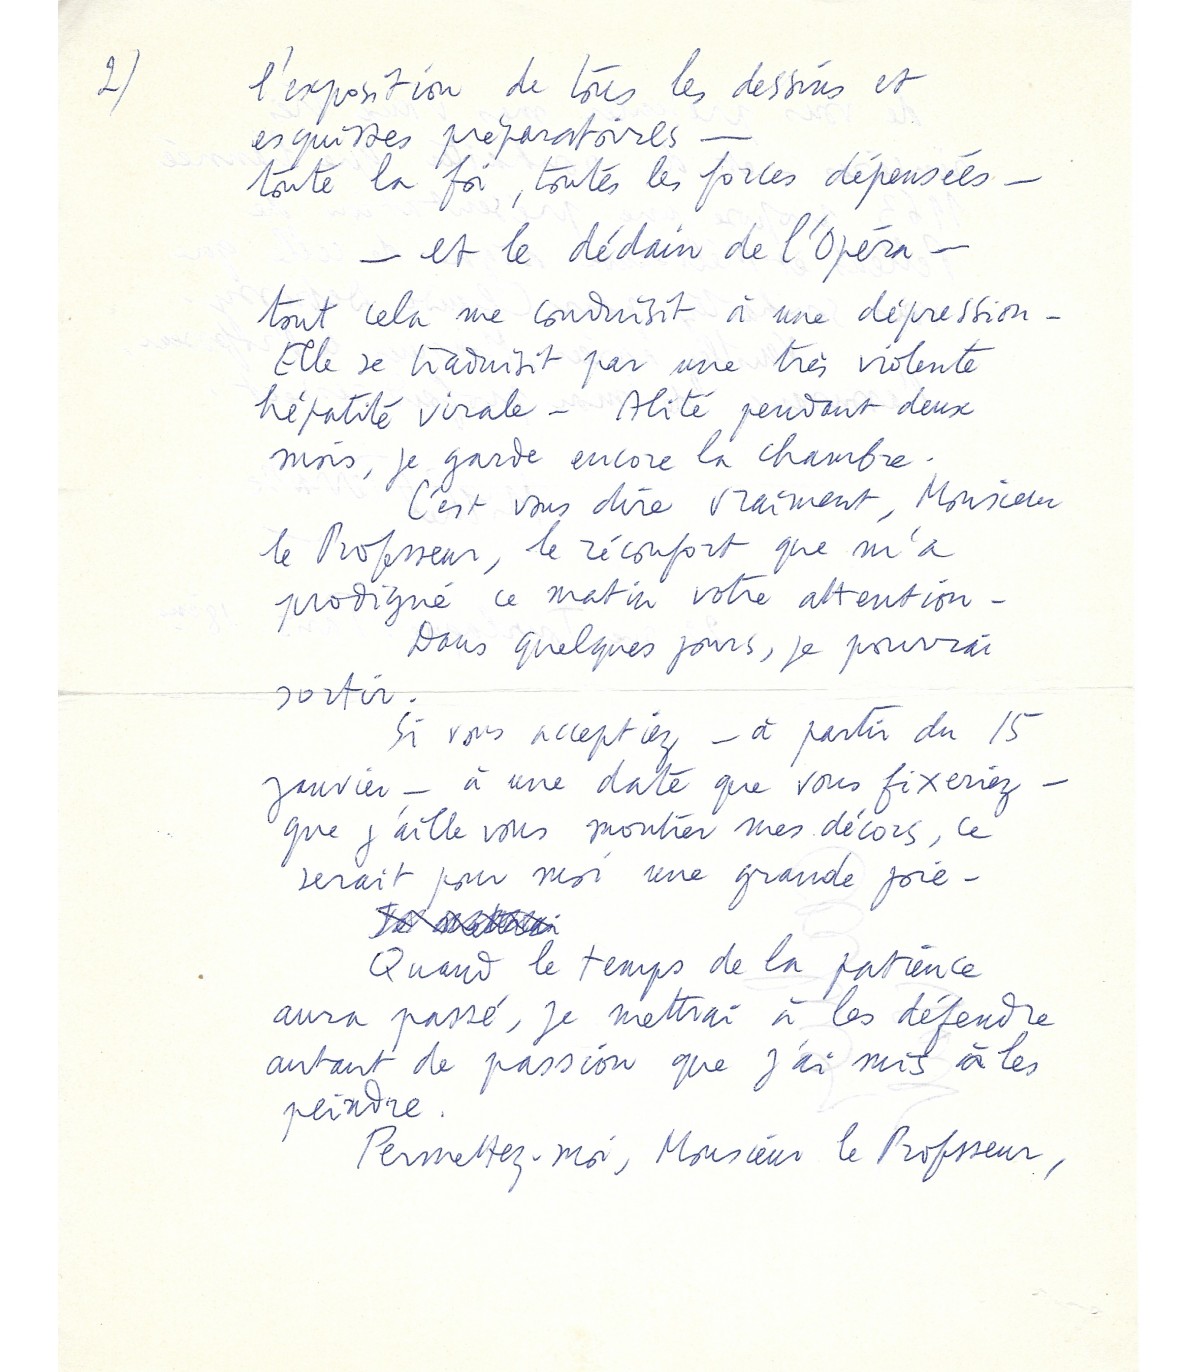 2)
l'exposition de tous les dessins et
esquisses préparatoires —
toute la foi, toutes les forces dépensées —
— et le dédain de l'Opéra —
tout cela me conduisit à une dépression —
Elle se traduisit par une très violente
hépatite virale — Alité pendant deux
mois, je garde encore la chambre.
C'est vous dire vraiment, Monsieur
le Professeur, le réconfort que m'a
prodigué ce matin votre attention —
Dans quelques jours, je pourrai
sortir.
Si vous acceptiez — à partir du 15
janvier — à une date que vous fixeriez —
que j'aille vous montrer mes décors, ce
serait pour moi une grande joie —
Quand le temps de la patience
aura passé, je mettrai à les défendre
autant de passion que j'ai mis à les
peindre.
Permettez-moi, Monsieur le Professeur,